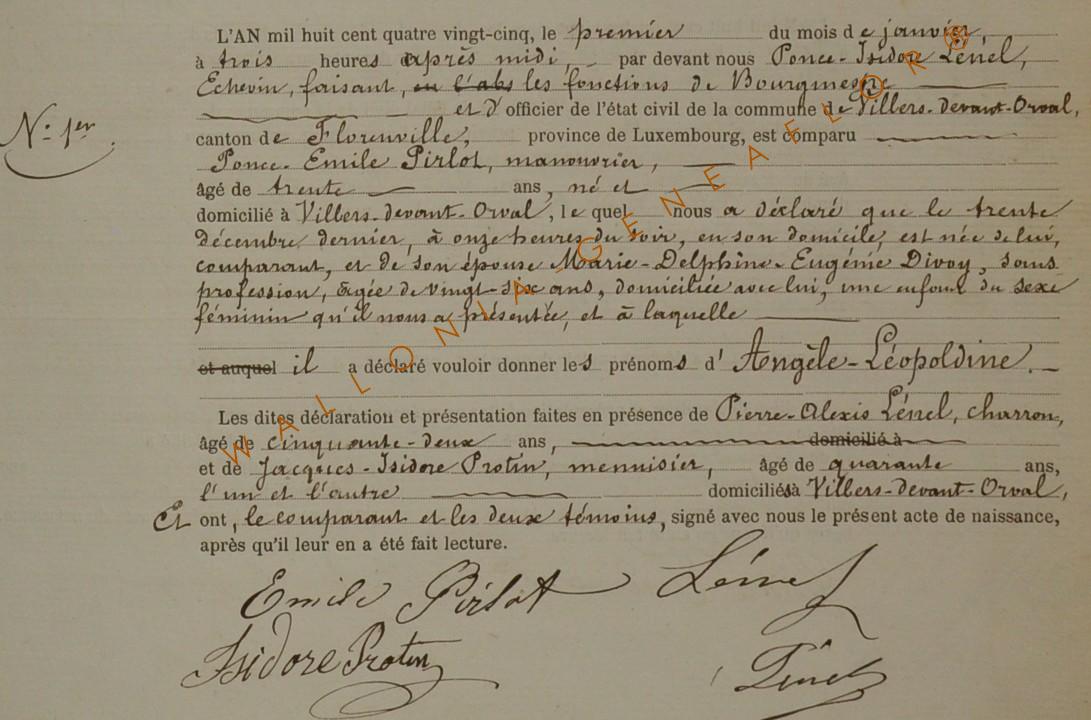 L'AN mil huit cent quatre vingt-cinq, le premier du mois de janvier,
à trois heures après midi, par devant nous Ponce-Isidore Lénel,
Echevin, faisant, en l'abs les fonctions de Bourgmestre
et d'officier de l'état civil de la commune de Villers-devant-Orval,
N° 1er.
canton de Florenville, province de Luxembourg, est comparu
Ponce-Emile Pirlot, manouvrier,
âgé de trente ans, né et
domicilié à Villers-devant-Orval, lequel nous a déclaré que le trente
décembre dernier, à onze heures du soir, en son domicile, est née de lui,
comparant, et de son épouse Marie-Delphine-Eugénie Divoy, sans
profession, âgée de vingt-six ans, domiciliée avec lui, une enfant du sexe
féminin qu'il nous a présentée, et à laquelle
et auquel il a déclaré vouloir donner les prénoms d'Angèle-Léopoldine.
Les dites déclaration et présentation faites en présence de Pierre-Alexis Lénel, charron,
âgé de cinquante-deux ans, domicilié à
et de Jacques-Isidore Protin, menuisier, âgé de quarante ans,
l'un et l'autre domiciliés à Villers-devant-Orval,
Et ont, le comparant et les deux témoins, signé avec nous le présent acte de naissance,
après qu'il leur en a été fait lecture.
Emile Pirlot Lénel
Isidore Protin Lénel
WALLONIA-GENEALOR®